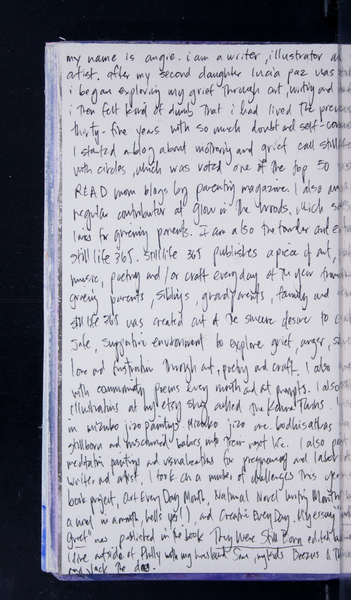 my name is angie. i am a writer, illustrator
artist. after my second daughter lucia paz was
i began exploring my grief through art, writing and
i then felt kind of dumb that i had lived the
thirty-five years with so much doubt and self-
I started a blog about mothering and grief call still
with circles, which was voted one of the top 50
READ mom blogs by parenting magazine. I also am a
regular contributor at Glow in the Woods, which
lines for grieving parents. I am also the founder and
still life 365. still life 365 publishes a piece of art,
music, poetry and/or craft everyday of the year from
grieving parents, siblings, grandparents, family and
still life 365 was created out of the sincere desire to
safe, supportive environment to explore grief, anger,
love and frustration through art, poetry and craft. I also
with community poems every month and art prompts. I also
illustrations at my etsy shop called The Kenna Twins.
in mizuko jizo paintings. Mizuko jizo are bodhisattvas
stillborn and miscarried babies into their next life. I also
meditative paintings and visualizations for pregnancy and labor
writer and artist. I took on a number of challenges this year
book project, Art Every Day Month, National Novel Writing Month
a novel in a month, hells yes!), and Creative Every Day. My essay
Grief" was published in the book They Were Still Born edited
I live outside of Philly with my husband Sam, my kids Beezus &
and Jack the dog.